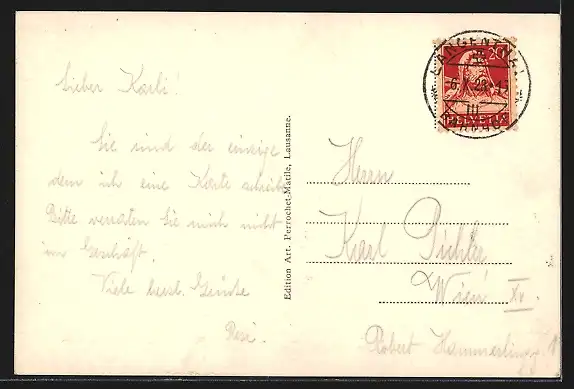 Lieber Karli!
Sie sind der einzige
dem ich eine Karte schreibe
Bitte verraten Sie mich nicht
im Geschäft.
Viele herzl. Grüsse
Resi.
Edition Art. Perrochet-Matile, Lausanne.
20
HELVETIA
LANGENTHAL
III
Herrn
Karl Pichler
Wien XV.
Robert Hammerling